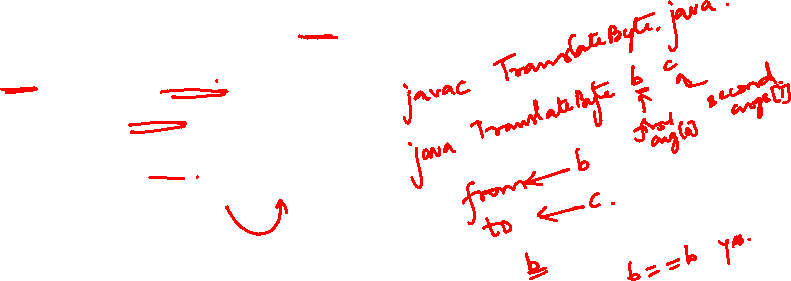 javac TranslateByte.java.
java TranslateByte b c
first arg[0] second args[1]
from ← b
to ← c.
b b==b yes.